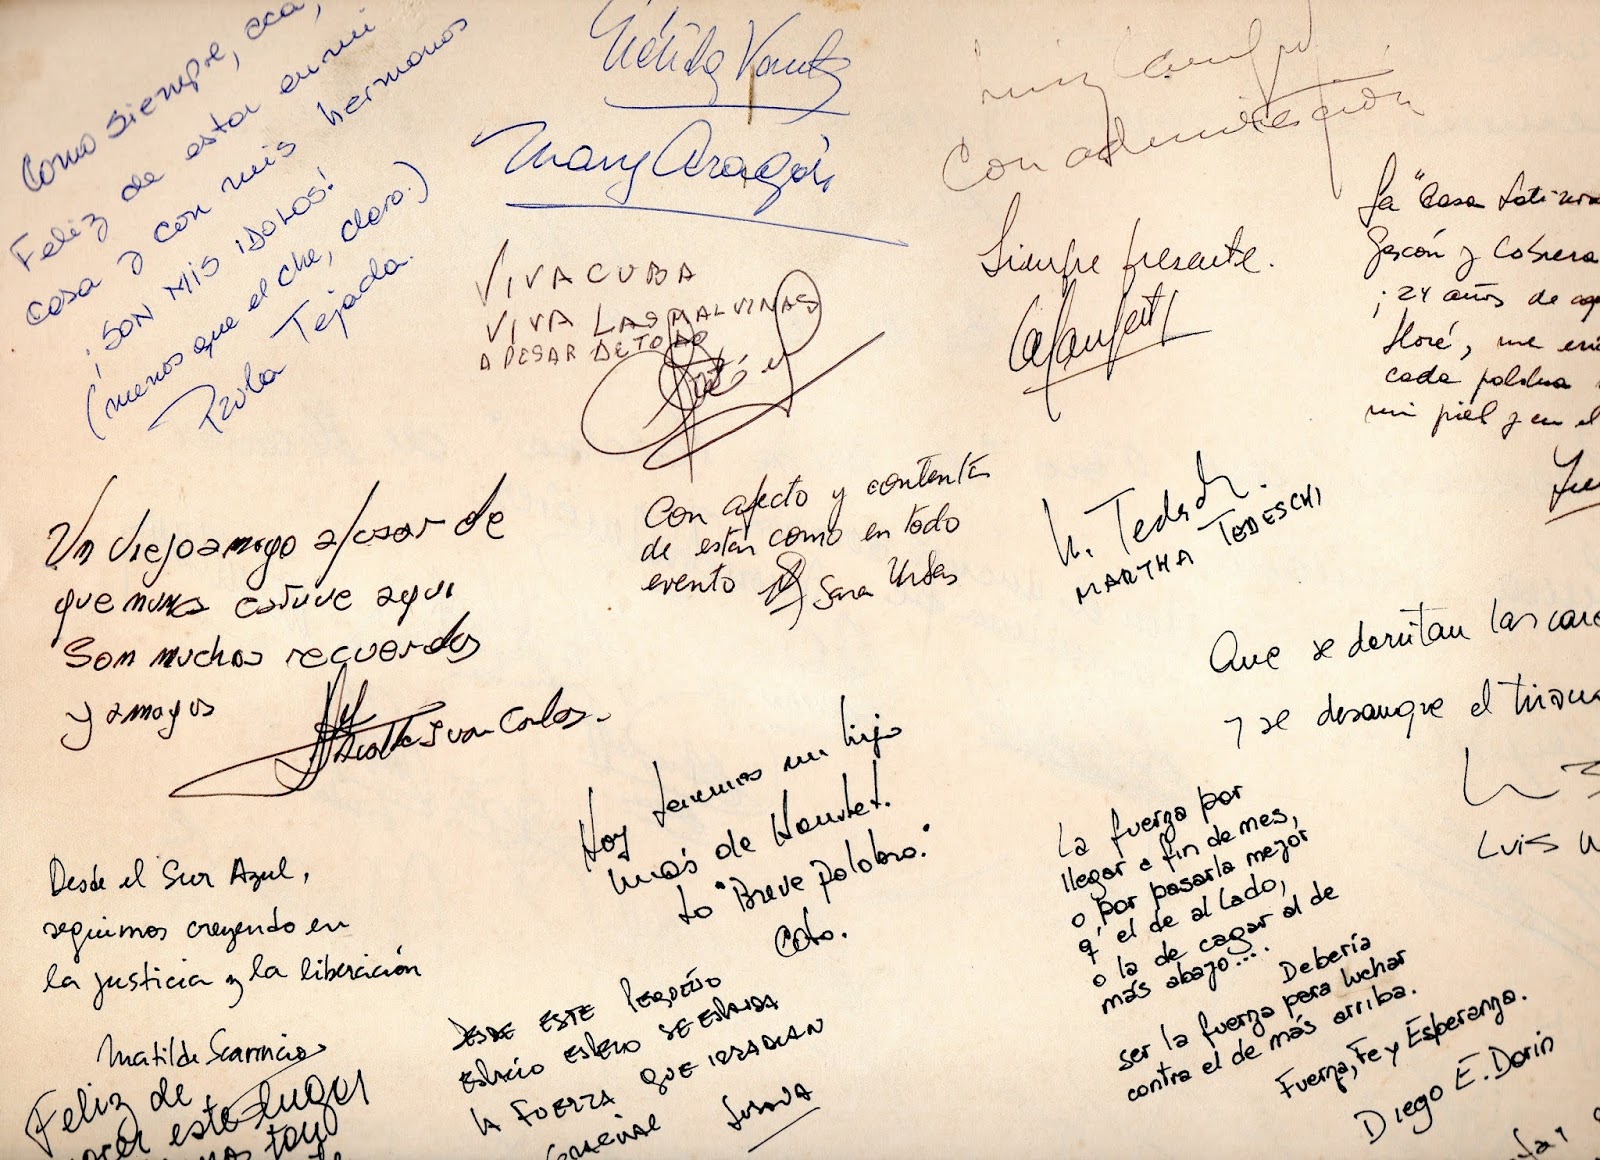 Como siempre, aca,
Feliz de estar en mi
casa y con mis hermanos
¡SON MIS IDOLOS!
(menos que el che, claro.)
Tejada.
Nélida
Many Aragón
Con admiración
VIVA CUBA
VIVA LAS MALVINAS
A PESAR DE TODO
Siempre presente.
La "Casa Latinoa
Gascón y Cabrera
¡24 años de
lloré, me
cada palabra
mi piel y en el
Un viejo amigo apesar de
que nunca estuve aqui
Son muchos recuerdos
y amigos
Juan Carlos.
Con afecto y contenta
de estar como en todo
evento Sara
M. Tedeschi.
MARTHA TEDESCHI
Que se derritan las
y se desangre el
LUIS
Hoy tenemos un hijo
más de Hamlet.
La "Breve palabra."
Desde el Sur Azul,
seguimos creyendo en
la justicia y la liberación
Matilde
Feliz de
este lugar
La fuerza por
llegar a fin de mes,
o por pasarla mejor
q' el de al lado,
o la de cagar al de
más abajo...
Debería
ser la fuerza para luchar
contra el de más arriba.
Fuerza, Fe y Esperanza.
Diego E. Dorin
DESDE ESTE PEQUEÑO
ESPACIO ESPERO SE ESPARZA
LA FUERZA QUE IRRADIAN
SUSANA